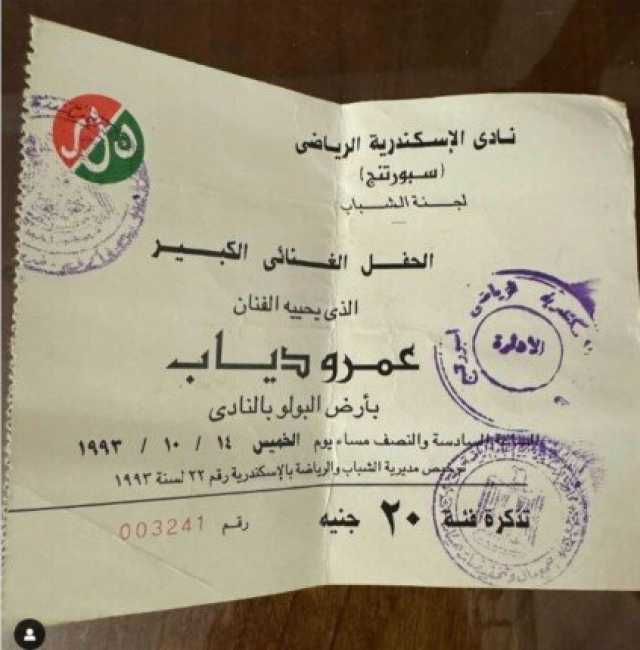 نادى الإسكندرية الرياضى
(سبورتنج)
لجنة الشباب
الحفل الغنائى الكبير
الذى يحييه الفنان
عمرو دياب
بأرض البولو بالنادى
السادسة والنصف مساء يوم الخميس ١٤ / ١٠ / ١٩٩٣
ترخيص مديرية الشباب والرياضة بالإسكندرية رقم ٢٢ لسنة ١٩٩٣
تذكرة فئة ٢٠ جنيه
رقم 003241
الإدارة